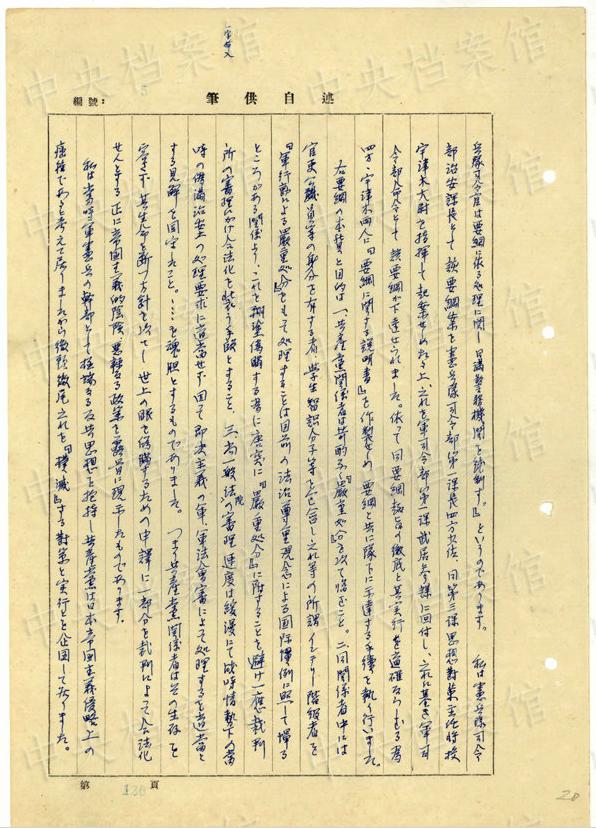 編號:
筆供自述
兵隊司令官は要綱に依る処理に関し日満警務機関を統制す。』というのであります。 私は憲兵隊司令
部治安課長として該要綱案を憲兵隊司令部第一課長四方大佐、同第三課思想対策主任将校
宇津木大尉を指揮して起案せしめたる上、之れを軍司令部第一課武居参謀に回付し、之れに基き軍司
令部命令として該要綱が下達せられました。依って同要綱趣旨の徹底と其実行を適確ならしむる為
四方・宇津木両人に『要綱に関する説明書』を作製せしめ、要綱と共に隊下に示達する手続を執り行いました。
右要綱の本質と目的は、一、共産党関係者は苛酷なる『厳重処分』を以て臨むこと。二、同関係者中には
官吏公職員等の身分を有する者、学生智識分子等を包含し之れ等の所謂インテリー階級者を
『軍行動による厳重処分』をもって処理することは国家の法治尊重観念による国際慣例に照して憚る
ところがある関係より、これを糊塗偽瞞する為に『厳重処分』に附することを避け一應裁判
所の審理にかけ合法化を装う手段とすること、三、尚一般法院の審理速度は緩慢にて時情勢下の当
時の偽満治安の処理要求に適当せず、因て即決主義の軍法会審によって処理するを適当と
する見解を固守したこと。……を魂胆とするものでありました。 つまり共産党関係者は其の生存を
容さず其生命を断つ方針を決し世上の眼を偽瞞するための申譯に一部分を裁判によって合法化
せんとする正に帝国主義的陰険悪辣なる政策を露骨に現示したものであります。
私は当時軍憲兵の幹部として極端なる反共思想を抱持し共産党は日本帝国主義侵略上の
癌種であると考えて居りましたから徹頭徹尾之れを『撲滅』する対策と実行とを企図して居りました。
第 130 頁
20
中央档案馆